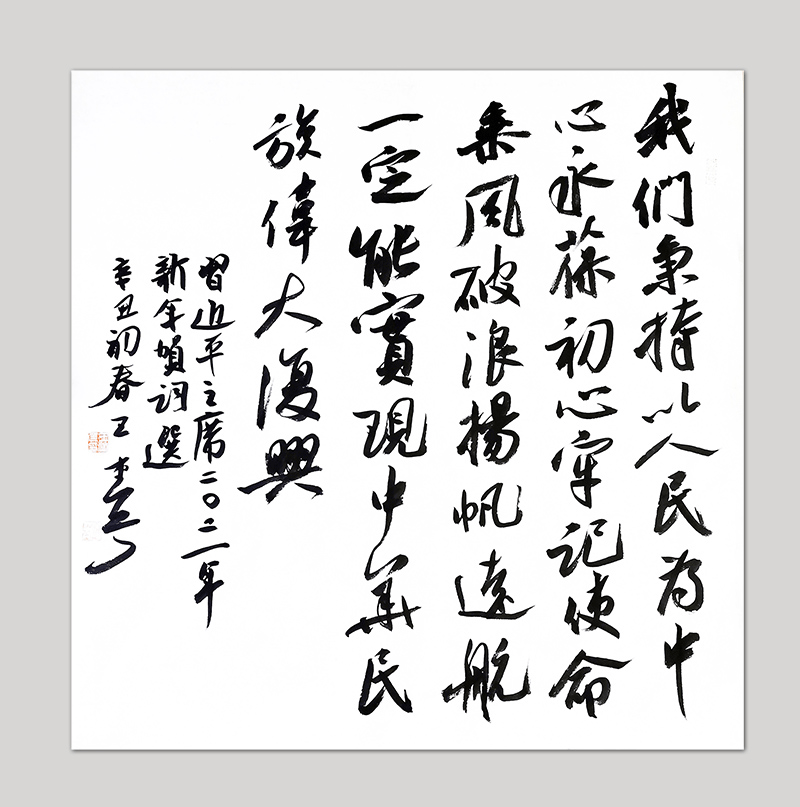 我們秉持以人民为中
心永葆初心牢记使命
乘風破浪揚帆遠航
一定能實現中華民
族偉大復興
習近平主席二〇二一年
新年賀詞選
辛丑初春王